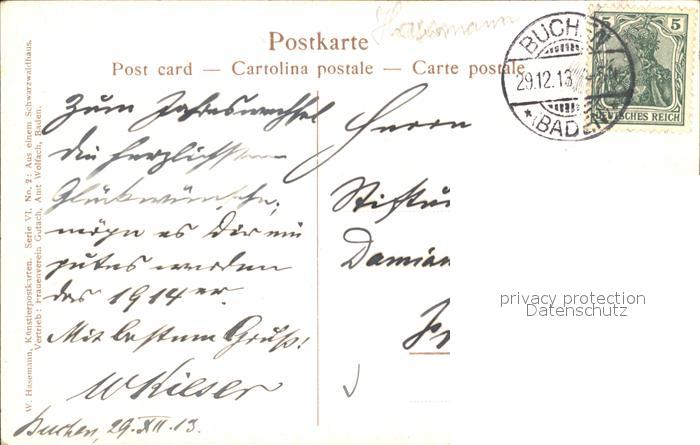 Postkarte
Post card — Cartolina postale — Carte postale
Hasemann
BUCHEN
29.12.13
* (BADEN)
5 5
DEUTSCHES REICH
W. Hasemann, Künstlerpostkarten. Serie VI. No. 2: Aus einem Schwarzwaldhaus.
Vertrieb: Frauenverein Gutach, Amt Wolfach, Baden.
Zum Jahreswechsel
die herzlichsten
Glückwünsche,
möge es Dir ein
gutes werden
das 1914er.
Mit bestem Gruß!
WKieser
Buchen, 29.XII.13.
Herrn
Damian
privacy protection
Datenschutz